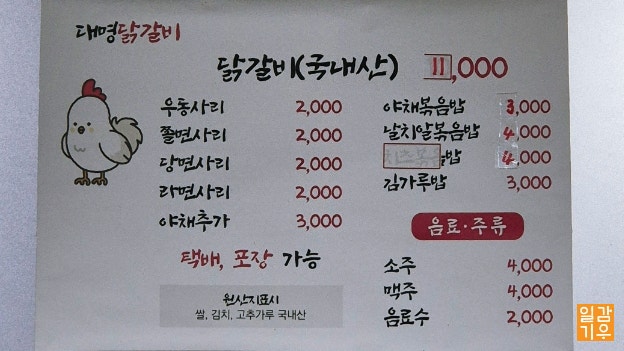 대명닭갈비
닭갈비(국내산) 11,000
우동사리 2,000
쫄면사리 2,000
당면사리 2,000
라면사리 2,000
야채추가 3,000
택배, 포장 가능
원산지표시
쌀, 김치, 고추가루 국내산
야채볶음밥 3,000
날치알볶음밥 4,000
치즈볶음밥 4,000
김가루밥 3,000
음료·주류
소주 4,000
맥주 4,000
음료수 2,000
일감
기우